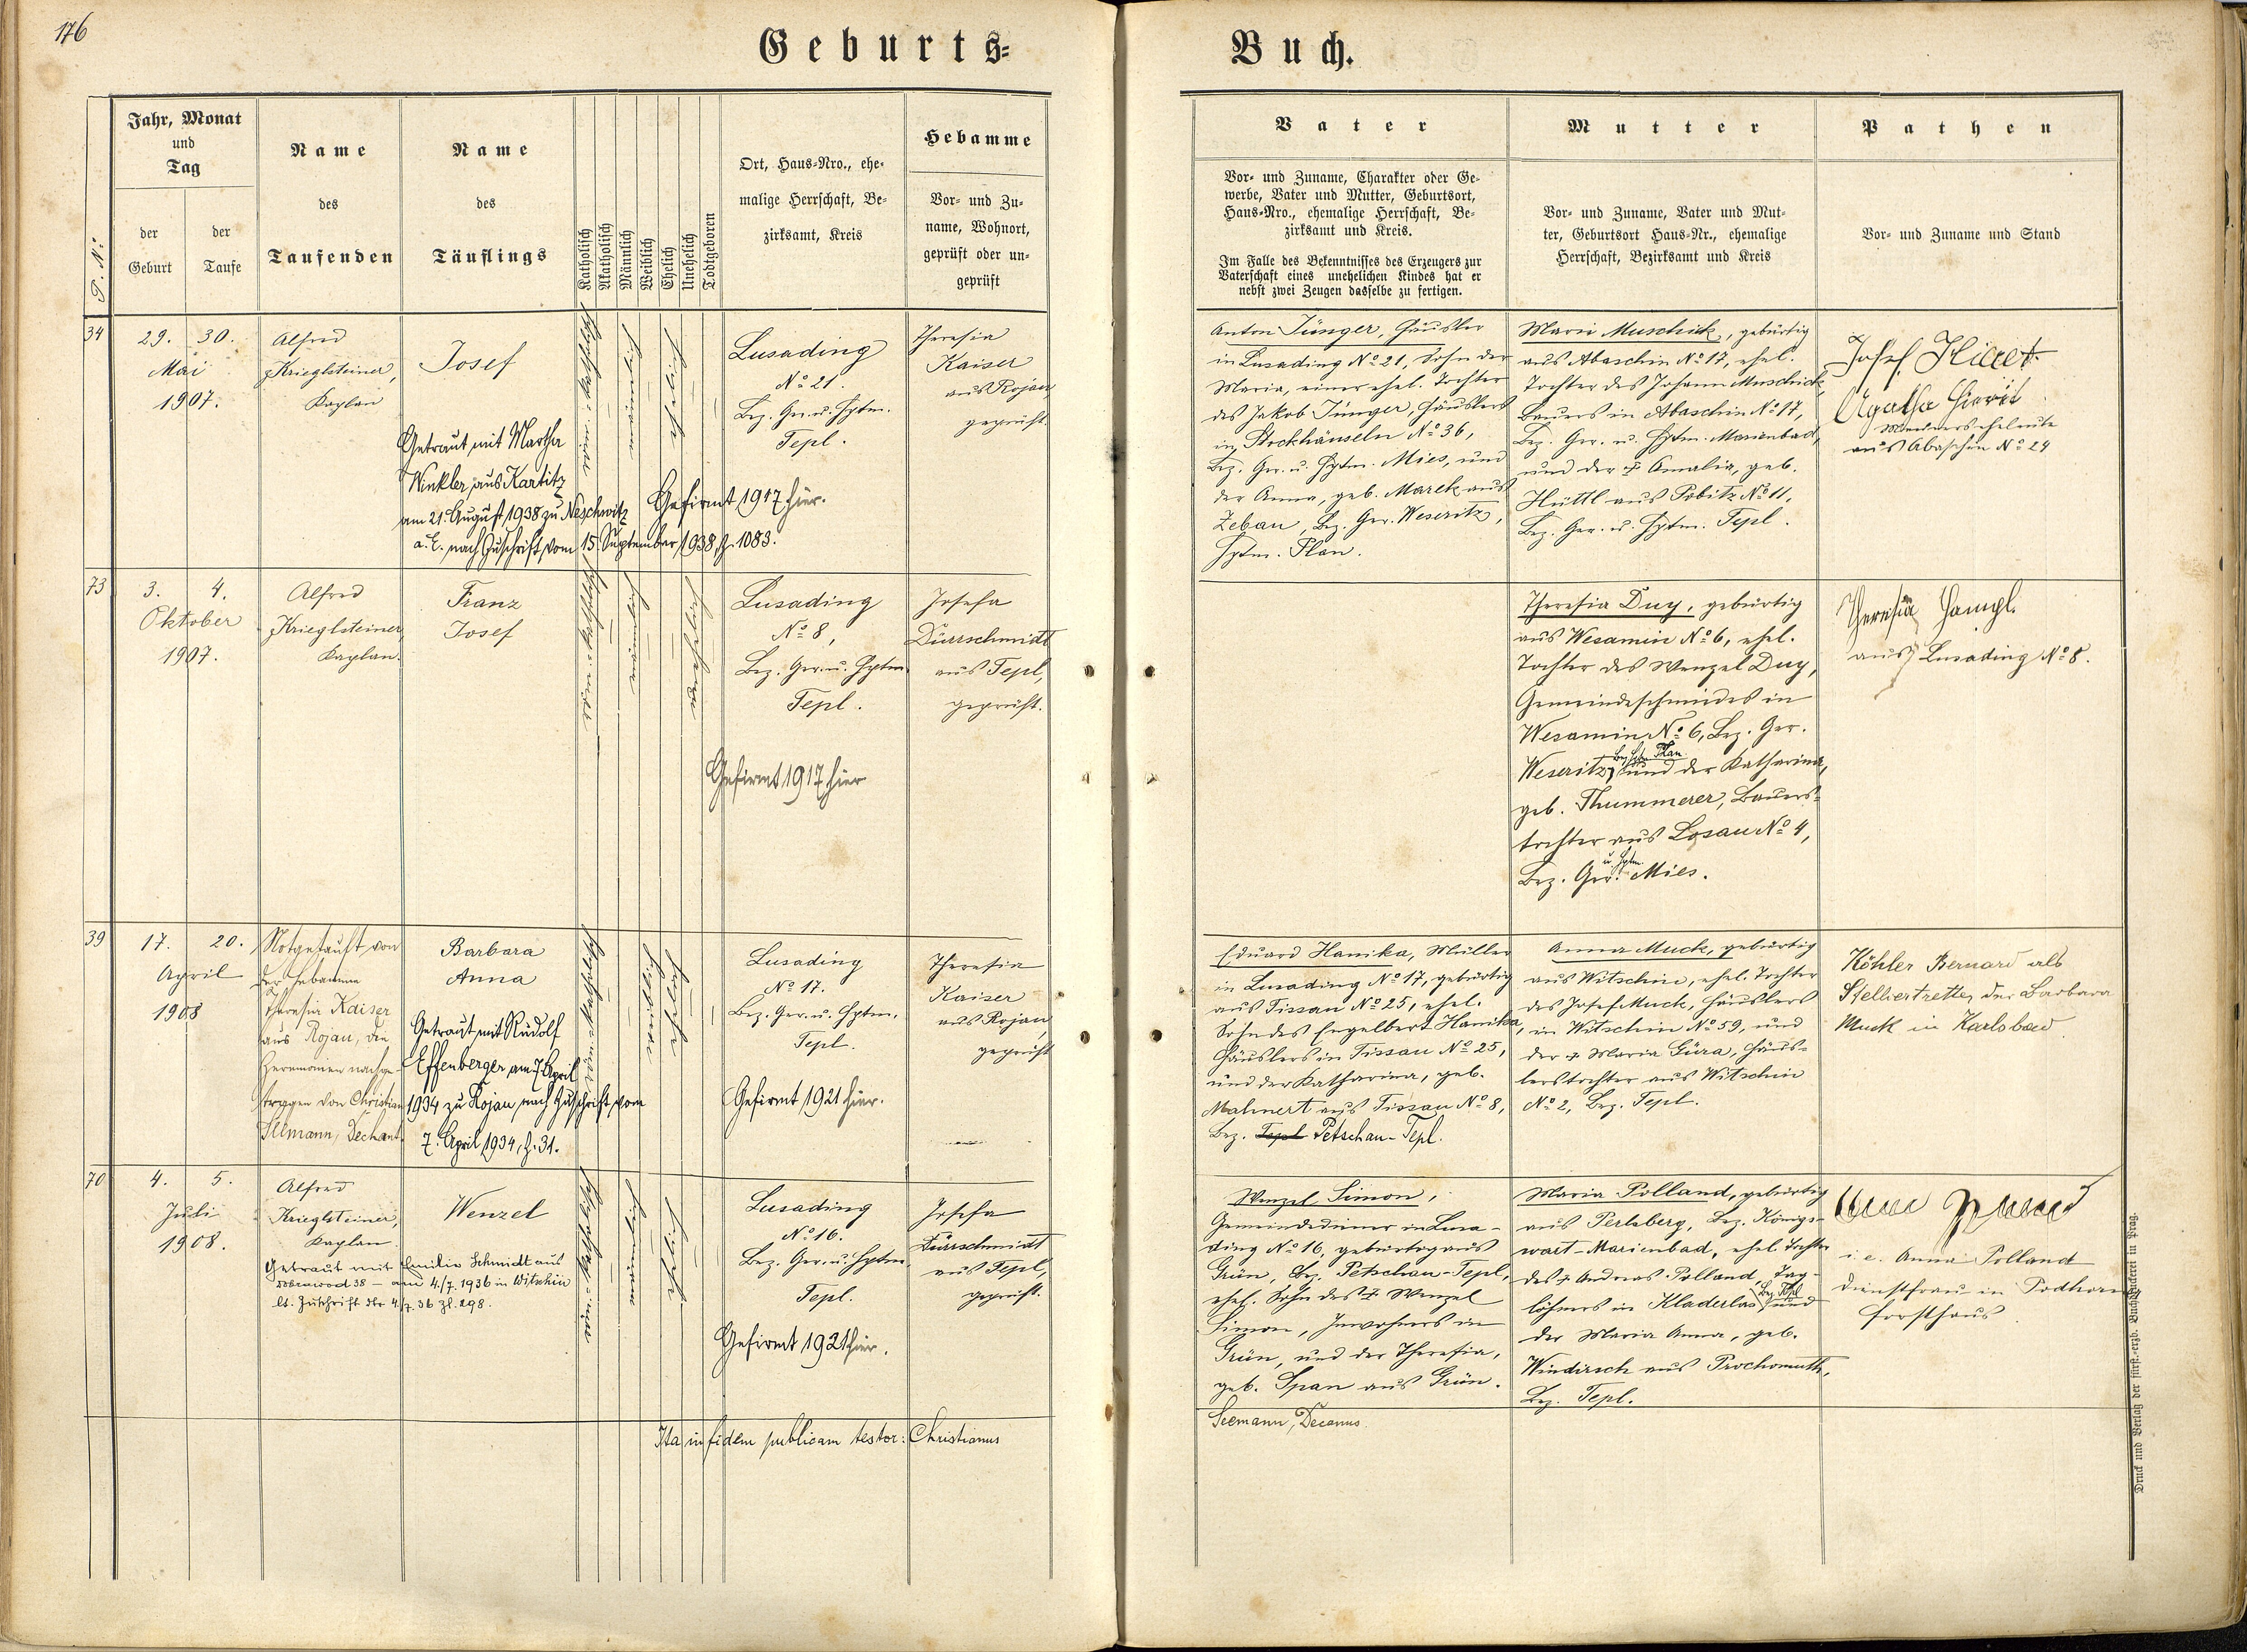 176
Geburts=
Buch.
P. No
Jahr, Monat
und
Tag
der
Geburt
der
Taufe
Name
des
Taufenden
Name
des
Täuflings
Katholisch
Akatholisch
Männlich
Weiblich
Ehelich
Unehelich
Todtgeboren
Ort, Haus=Nro., ehe=
malige Herrschaft, Be=
zirksamt, Kreis
Hebamme
Vor= und Zu=
name, Wohnort,
geprüft oder un=
geprüft
Vater
Vor= und Zuname, Charakter oder Ge=
werbe, Vater und Mutter, Geburtsort,
Haus=Nro., ehemalige Herrschaft, Be=
zirksamt und Kreis.
Im Falle des Bekenntnisses des Erzeugers zur
Vaterschaft eines unehelichen Kindes hat er
nebst zwei Zeugen dasselbe zu fertigen.
Mutter
Vor= und Zuname, Vater und Mut=
ter, Geburtsort Haus=Nr., ehemalige
Herrschaft, Bezirksamt und Kreis
Pathen
Vor= und Zuname und Stand
34
29. 30.
Mai
1907.
Alfred
Krieglsteiner,
Kaplan
Josef
Getraut mit Martha
Winkler aus Kartitz
am 21. August 1938 zu Neschwitz
a. E. nach Zuschrift vom 15. September 1938, Z. 1083.
Gefirmt 1917 hier.
männlich
ehelich
Lusading
No 21.
Bez. Ger. u. Hptm.
Tepl.
Theresia
Kaiser
aus Rojau
geprüft.
Anton Jünger, Häusler
in Lusading No 21, Sohn der
Maria, einer ehel. Tochter
des Jakob Jünger, Häuslers
in Stockhäuseln No 36,
Bez. Ger. u. Hptm. Mies, und
der Anna, geb. Marek aus
Zebau, Bez. Ger. Weseritz,
Hptm. Plan.
Marie Muschick, gebürtig
aus Abaschin No 17, ehel.
Tochter des Johann Muschick,
Bauers in Abaschin No 17,
Bez. Ger. u. Hptm. Marienbad,
und der † Amalia, geb.
Hüttl aus Pobitz No 11,
Bez. Ger. u. Hptm. Tepl.
Josef
Agatha
aus Abaschin No 24
73
3. 4.
Oktober
1907.
Alfred
Krieglsteiner,
Kaplan.
Franz
Josef
männlich
Lusading
No 8,
Bez. Ger. u. Hptm.
Tepl.
Gefirmt 1917 hier
Josefa
Dürrschmidt
aus Tepl,
geprüft.
Theresia Duy, gebürtig
aus Wesamin No 6, ehel.
Tochter des Wenzel Duy,
Gemeindeschmiedes in
Wesamin No 6, Bez. Ger.
Weseritz, Bez. Hptm. Plan und der Katharina,
geb. Thummerer, Bauers=
tochter aus Losau No 4,
Bez. Ger. u. Hptm. Mies.
Theresia Hampl.
aus Lusading No 8.
39
17. 20.
April
1908
Notgetauft von
der Hebamme
Theresia Kaiser
aus Rojau, die
Zeremonien nachge
tragen von Christian
Seemann, Dechant.
Barbara
Anna
Getraut mit Rudolf
Effenberger am 7. April
1934 zu Rojau nach Zuschrift vom
7. April 1934, Z. 31.
weiblich
ehelich
Lusading
No 17.
Bez. Ger. u. Hptm.
Tepl.
Gefirmt 1921 hier.
Theresia
Kaiser
aus Rojau
geprüft
Eduard Hanika, Müller
in Lusading No 17, gebürtig
aus Tissau No 25, ehel.
Sohn des Engelbert Hanika,
Häuslers in Tissau No 25,
und der Katharina, geb.
Mahnert aus Tissau No 8,
Bez. Tepl Petschau-Tepl.
Anna Muck, gebürtig
aus Witschin, ehel. Tochter
des Josef Muck, Häuslers
in Witschin No 59, und
der † Maria Güra, Häus=
lerstochter aus Witschin
No 2, Bez. Tepl.
Köhler Bernard als
Stellvertretter der Barbara
Muck in Karlsbad
70
4. 5.
Juli
1908.
Alfred
Krieglsteiner,
Kaplan
Wenzel
Getraut mit Emilie Schmidt aus
Dobrawod 38 – am 4./7. 1936 in Witschin
lt. Zuschrift dto 4./7. 36 Zl. 298.
männlich
ehelich
Lusading
No 16.
Bez. Ger. u. Hptm.
Tepl.
Gefirmt 1921 hier.
Josefa
Dürrschmidt
aus Tepl,
geprüft.
Wenzel Simon,
Gemeindediener in Lusa-
ding No 16, gebürtig aus
Grün, Bez. Petschau-Tepl,
ehel. Sohn des † Wenzel
Simon, Inwohners in
Grün, und der Theresia,
geb. Span aus Grün.
Maria Polland, gebürtig
aus Perlsberg, Bez. Königs-
wart-Marienbad, ehel. Tochter
des † Andreas Polland, Tag-
löhners in Kladerlas Bez. Tepl und
der Maria Anna, geb.
Windirsch aus Prochomuth,
Bez. Tepl.
i. e. Anna Polland
Dienstfrau in Podhorn
Forsthaus
Ita in fidem publicam testor: Christianus
Seemann, Decanus.
Druck und Verlag der fürst.=erzb. Buchdruckerei in Prag.